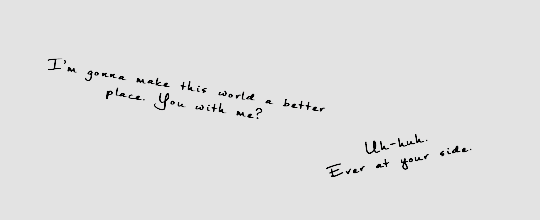 I'm gonna make this world a better
place. You with me?
Uh-huh.
Ever at your side.